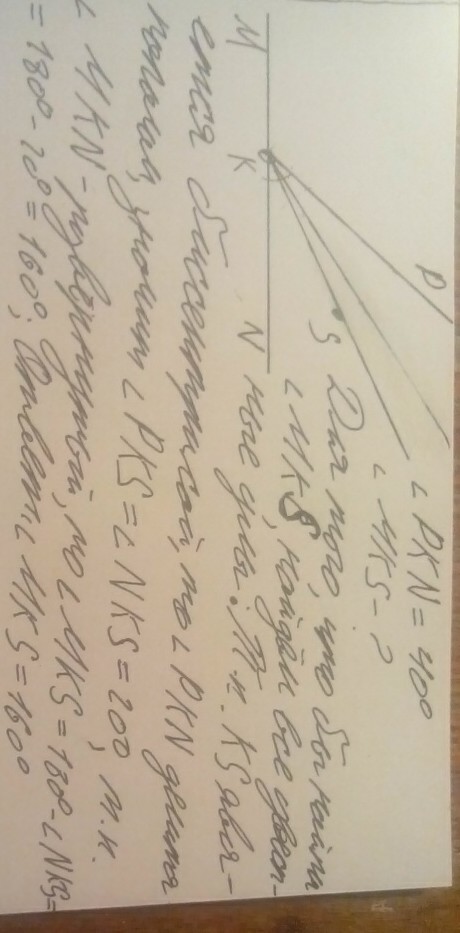 P
M K N
S
∠PKN = 40°
∠MKS - ?
Для того, что бы найти
∠MKS, найдём все
ные углы. Т. к. KS явля-
ется биссектрисой, то ∠PKN делит
пополам, значит ∠PKS = ∠NKS = 20°, т.к.
∠MKN - развёрнутый, то ∠MKS = 180 - ∠NKS =
= 180° - 20° = 160°; Ответ: ∠MKS = 160°